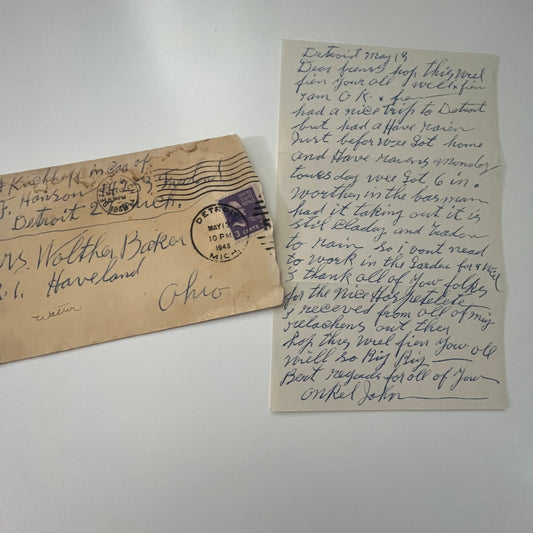 Kuchhoff in Car of
F. Hanson 14229 Freeland
Detroit 2 Mich.
DETROIT
MAY 13
10 PM
1948
MICH.
3 CENTS
Mrs. Walther Baker
Haveland
Ohio
Detroit May 19
Dear friens hop this wiel
fien your all well. fien
i am O K. & fien
had a nice trip to Detroit
but had a Have Raien
Just befor wee Got home
and Have Rarens Monday
toursday wee Got 6 in.
Worther in the basman
had it taking out it is
stil Clady and
to rain So i vont nead
to work in the Garden for
I thank all of your folks
for the Nice
i receved from all of mig
relachens out ther
hop this wiel fien You all
well so Big Big
Best regads for all of You
Onkel John